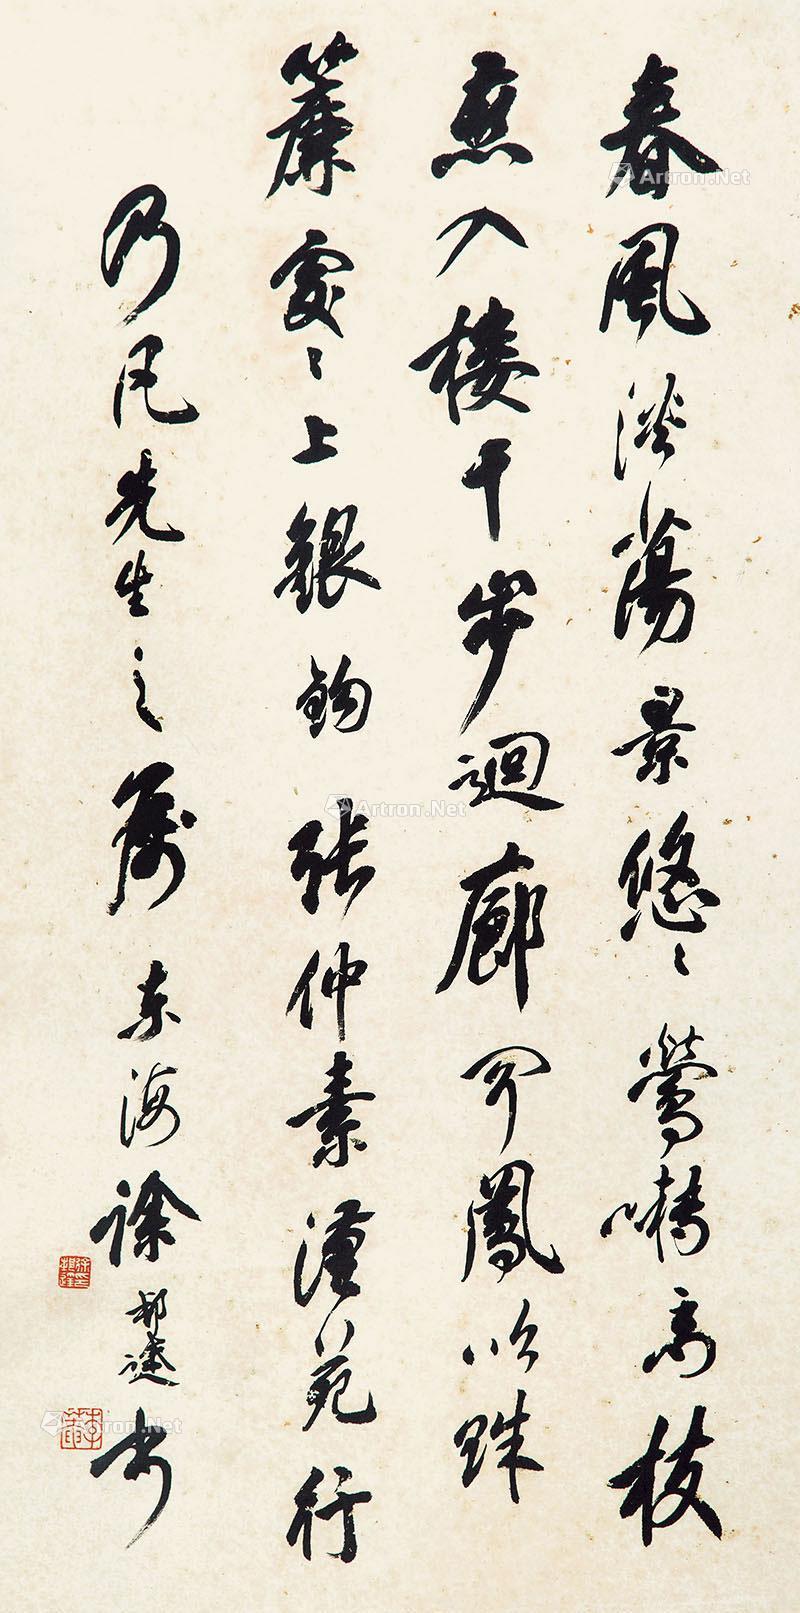 春風淡蕩景悠〻鶯囀高枝
燕入樓千步迴廊聞鳳吹珠
簾處〻上銀鉤張仲素漢苑行
乃 先生之屬東海徐邦達書
Artron.Net
Artron.Net
Artron.Net